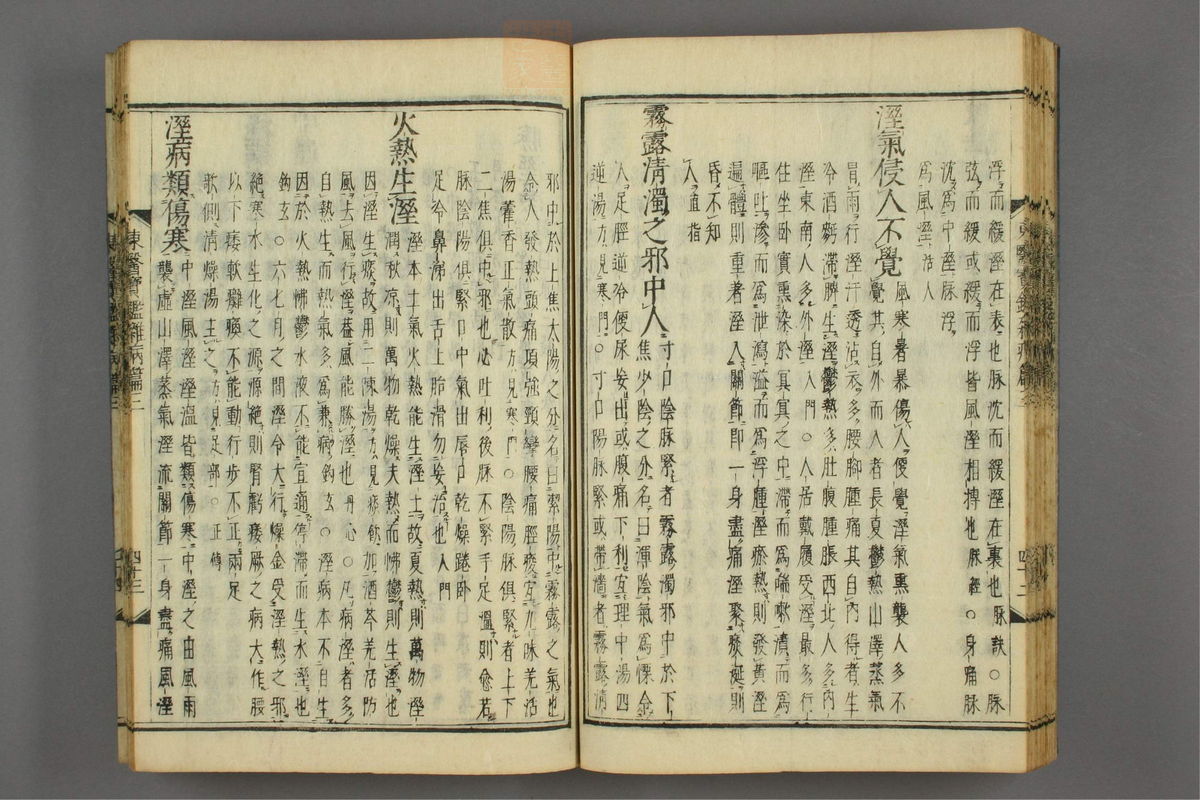 浮而緩溼在表也脉沈而緩溼在裏也脉訣○脉
弦而緩或緩而浮皆風溼相搏也脉經○身痛脉
沈爲中溼脉浮
爲風溼活人
溼氣侵人不覺風寒暑暴傷人便覺溼氣熏襲人多不
覺其自外而入者長夏鬱熱山澤蒸氣
冒雨行溼汗透沾衣多腰脚腫痛其自內得者生
冷酒麪滯脾生溼鬱熱多肚腹腫脹西北人多內
溼東南人多外溼入門○人居戴履受溼最多行
住坐臥實熏染於冥冥之中滯而爲喘嗽漬而爲
嘔吐滲而爲泄瀉溢而爲浮腫溼瘀熱則發黃溼
遍體則重着溼入關節卽一身盡痛溼聚痰涎則
昏不知
人直指
霧露淸濁之邪中人寸口陰脉緊者霧露濁邪中於下
焦少陰之分名曰渾陰氣爲慄令
人足脛逆冷便尿妄出或腹痛下利宜理中湯四
逆湯方見寒門○寸口陽脉緊或帶濇者霧露淸
邪中於上焦太陽之分名曰潔陽中霧露之氣也
令人發熱頭痛項強頸攣腰痛脛痠宜九味羌活
湯藿香正氣散方見寒門○陰陽脉俱緊者上下
二焦俱中邪也必吐利後脉不緊手足溫則愈若
脉陰陽俱緊口中氣出唇口乾燥踡臥
足冷鼻涕出舌上胎滑勿妄治也入門
火熱生溼溼本土氣火熱能生溼土故夏熱則萬物溼
潤秋凉則萬物乾燥夫熱而怫鬱則生溼也
因溼生痰故用二陳湯方見痰飮加酒芩羌活防
風去風行溼盖風能勝溼也丹心○凡病溼者多
自熱生而熱氣多爲兼病鉤玄○溼病本不自生
因於火熱怫鬱水液不能宣通停滯而生水溼也
鉤玄○六七月之間溼令大行燥金受溼熱之邪
絶寒水生化之源源絶則腎虧痿厥之病大作腰
以下痿軟癱瘓不能動行步不正兩足
欹側淸燥湯主之方見足部○正傳
溼病類傷寒中溼風溼溼溫皆類傷寒○中溼之由風雨
襲虛山澤蒸氣溼流關節一身盡痛風溼
東醫寶鑑雜病篇三
四十三